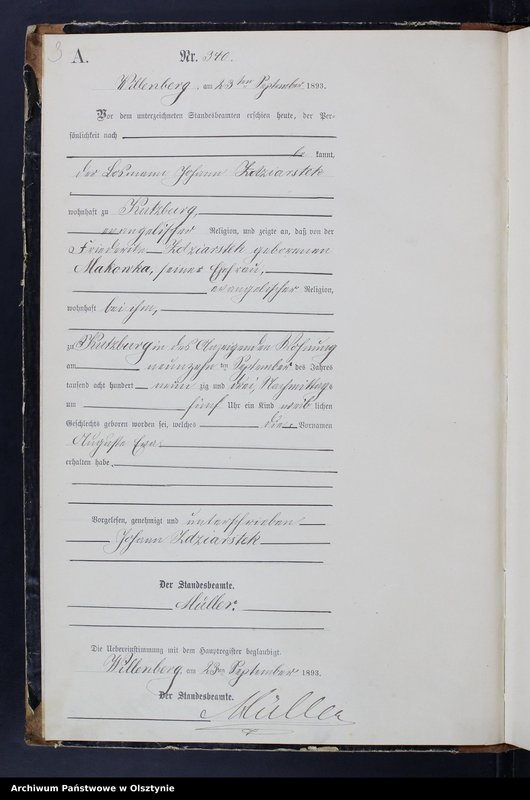 3
A.
Nr. 340.
Willenberg, am 23ten September 1893.
Vor dem unterzeichneten Standesbeamten erschien heute, der Per-
sönlichkeit nach
be kannt,
der Losmann Johann Zdziarstek
wohnhaft zu Kutzburg,
evangelischer Religion, und zeigte an, daß von der
Friederike Zdziarstek geborenen
Makowka, seiner Ehefrau,
evangelischer Religion,
wohnhaft bei ihm,
zu Kutzburg in des Anzeigenden Wohnung
am neunzehnten September des Jahres
tausend acht hundert neun zig und drei, Nachmittags
um fünf Uhr ein Kind weib lichen
Geschlechts geboren worden sei, welches die Vornamen
Auguste Eva
erhalten habe.
Vorgelesen, genehmigt und unterschrieben
Johann Zdziarstek
Der Standesbeamte.
Müller.
Die Uebereinstimmung mit dem Hauptregister beglaubigt.
Willenberg, am 23ten September 1893.
Der Standesbeamte.
Müller
Archiwum Państwowe w Olsztynie